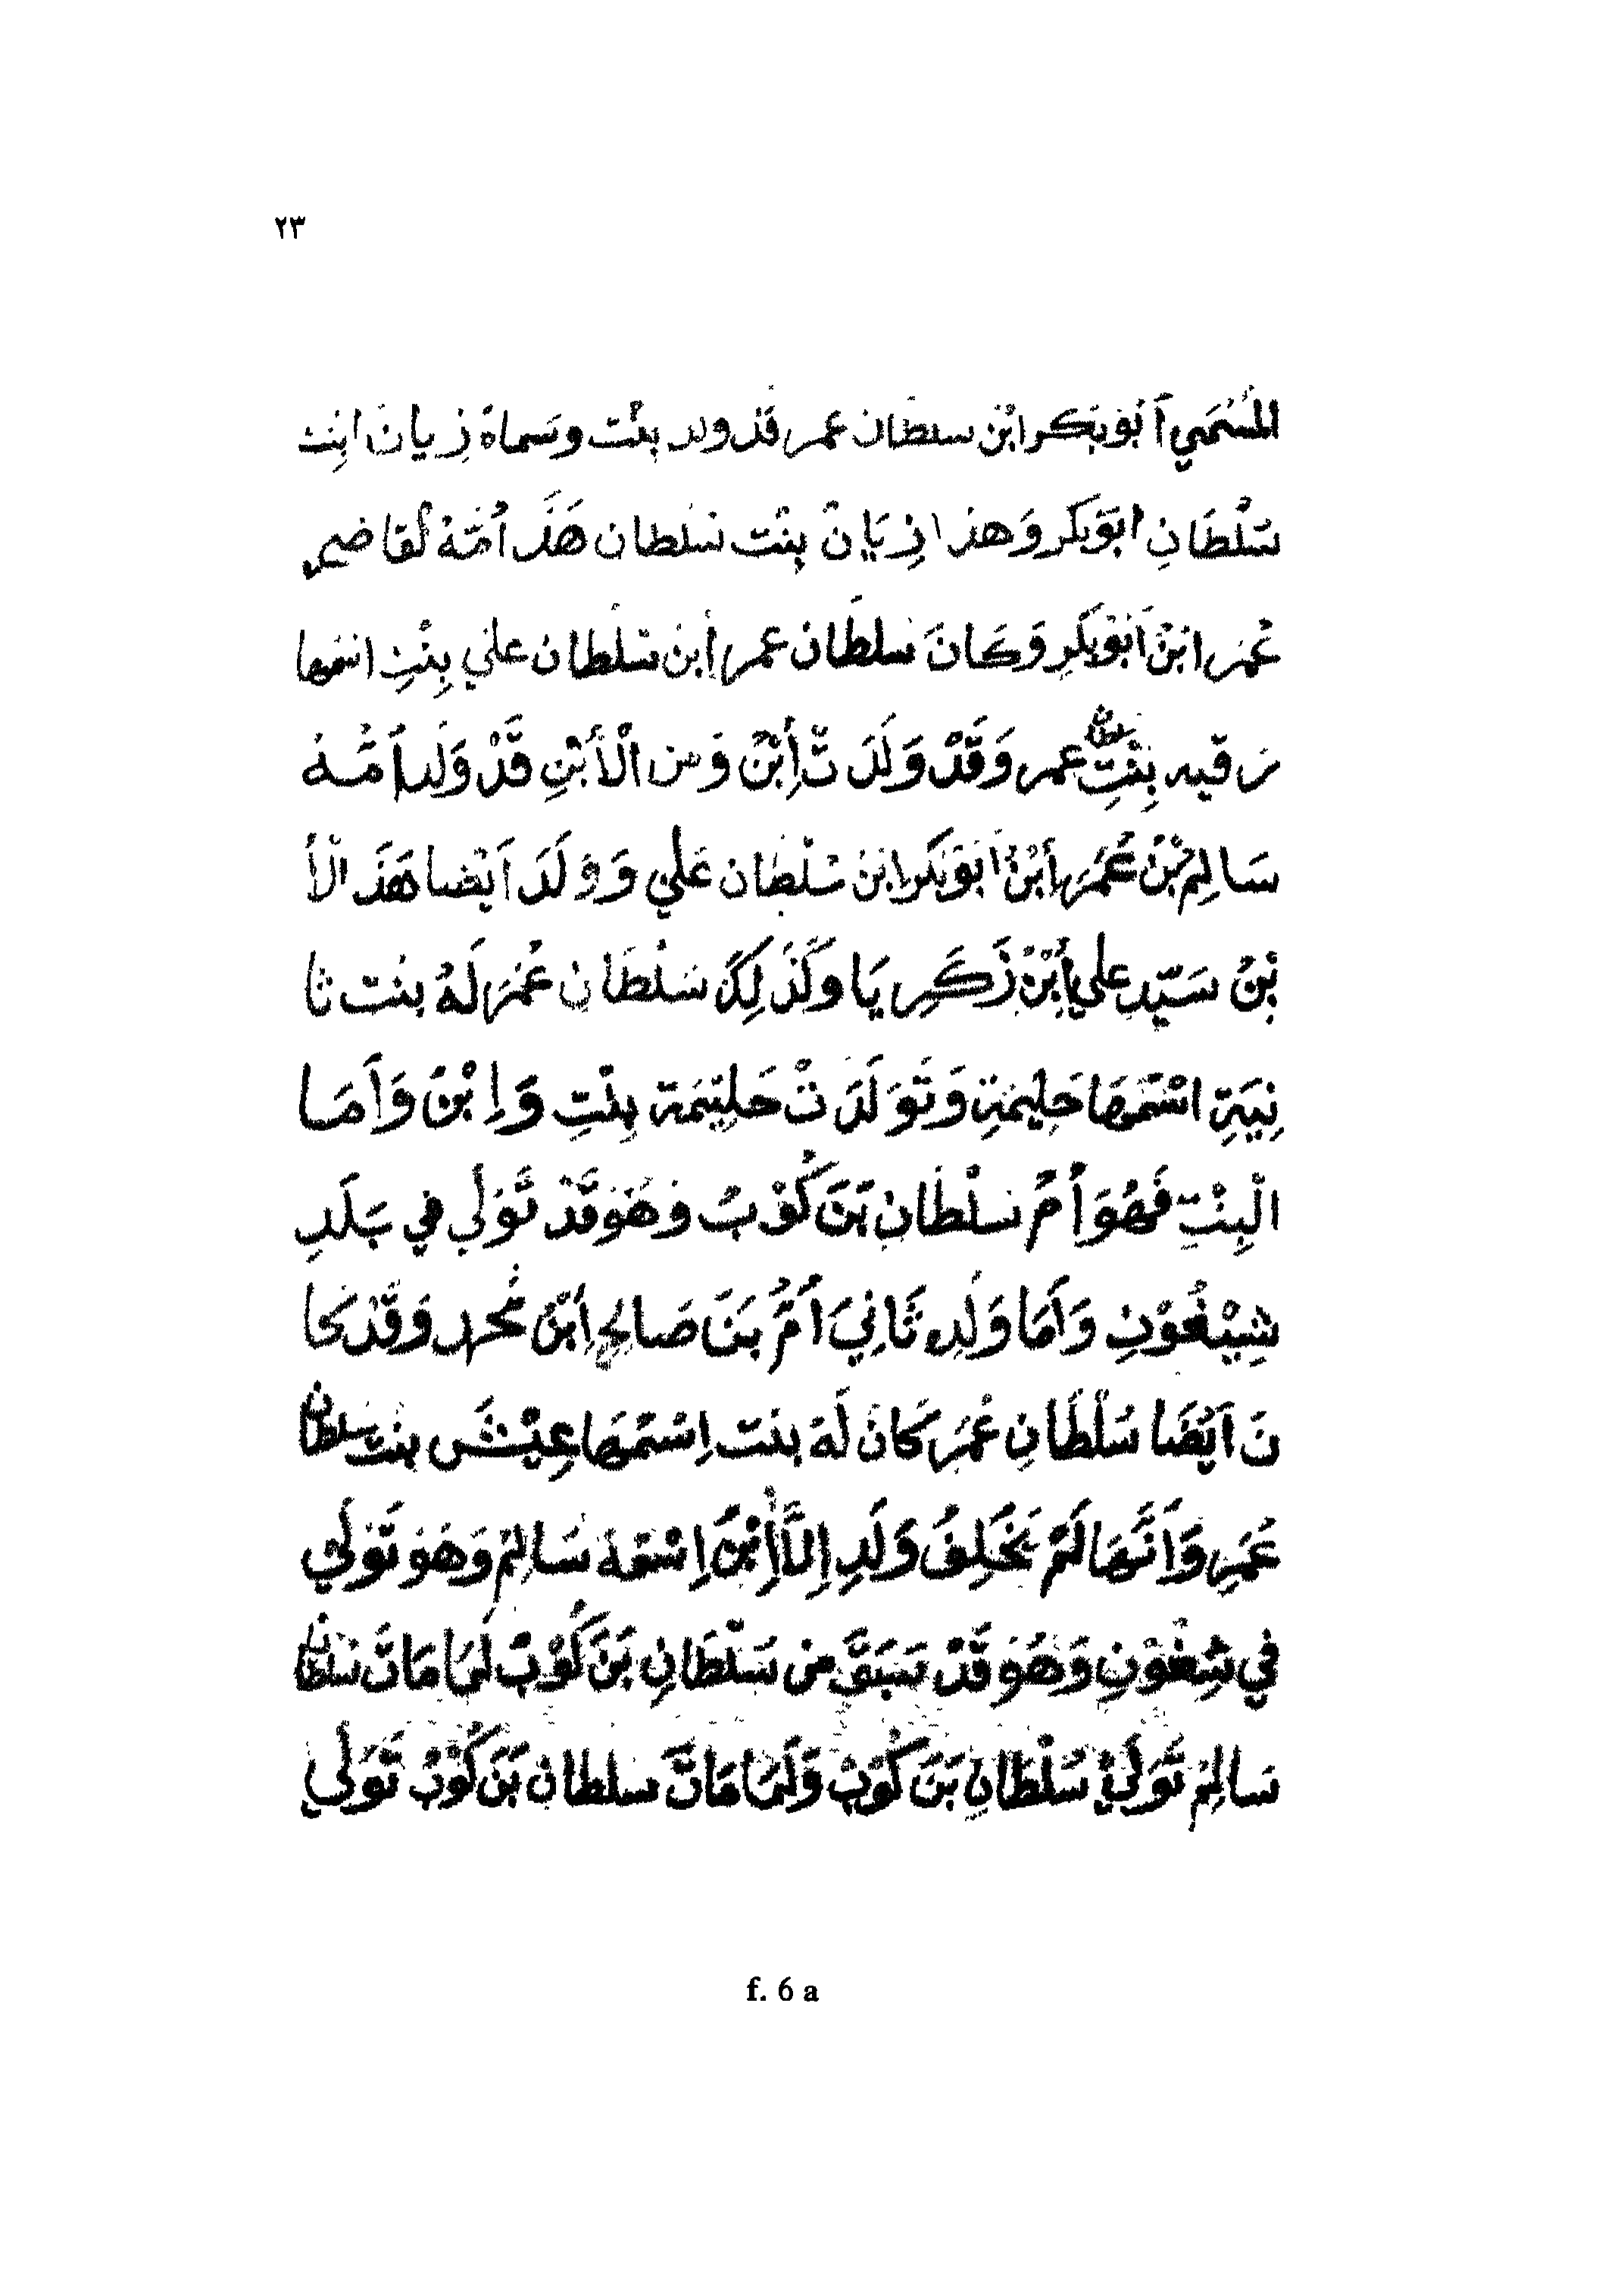 ٢٣
المُسَمَي آبُوبَكر ابْن سلطان عمر قد ولد بِنْت وسَماهَ زِيان ابنت
سَلْطَانِ ابوَبَكَر وَهذا زِيَانْ بِنْت سَلطان هَذَ اُمَّهُ لْقاضي
عُمَر ابْنْ اَبَوْبَكَرِ وَكَانَ سَلطَان عمر أبن سَلْطان علي بِنْتِ اسْمها
رقيه بِنْتِ سلطان عمر وَقَّدْ وَلَدَ تْ إَبْنْ وَمن الْأبْنِ قَّدْ وَلد اَمَّهُ
سَالِمْ بْنُ عُمَر أبْنُ ابَوْبَكر ابن سَلْطان عَلي وَوَلَدَ اَيْضا هَذَ الْأ
بْنُ سَيّد علي أبْنْ زَكَرِيَا وكَذَلِكَ سَلْطَان عُمَر لَهُ بنت ثا
نِيَةِ اسْمَهَا حَلِيمَةِ وَتَوَلَدَ تْ حَليَمَة بِنْتِ وَإِ بْنَ وَاَمَا
الْبِنْتِ فَهُوَ أمُ سلْطَانِ بَنَ كُوْبُ وَهُوَ قَّدْ تَوَلي فِي بَلَدِ
شِيْغُوْنِ وَاَمَا وَلَدِ ثَانِيَ اَمُّ بَنَ صَالح إَبْنْ مُحمد وَقَّدْ كَا
نَ اَيْضَا سُلْطَانِ عُمَر كَانَ لَهَ بنت اِسْمَهَا عِيْشَ بنت سلطان
عُمَرِ وَاَنَّهَا لَمْ يَخَلِفُ وَلَدِ اِلاَّ إِبْنُ اِسْمهُ سَالِمْ وَهُوَ تَوَليْ
في شِغُوْنِ وَهُوَ قَّدْ سَبَقَ من سَلْطَانِ بَنَ كُوْبُ لَمَا مَاتَ سلطان
سَالِمْ تَوَليْ سُلْطَانِ بَنَ كُوْبُ وَلَمَا مَاتَ سلطان بَنَ كُوْبُ تَوَلي
f. 6 a